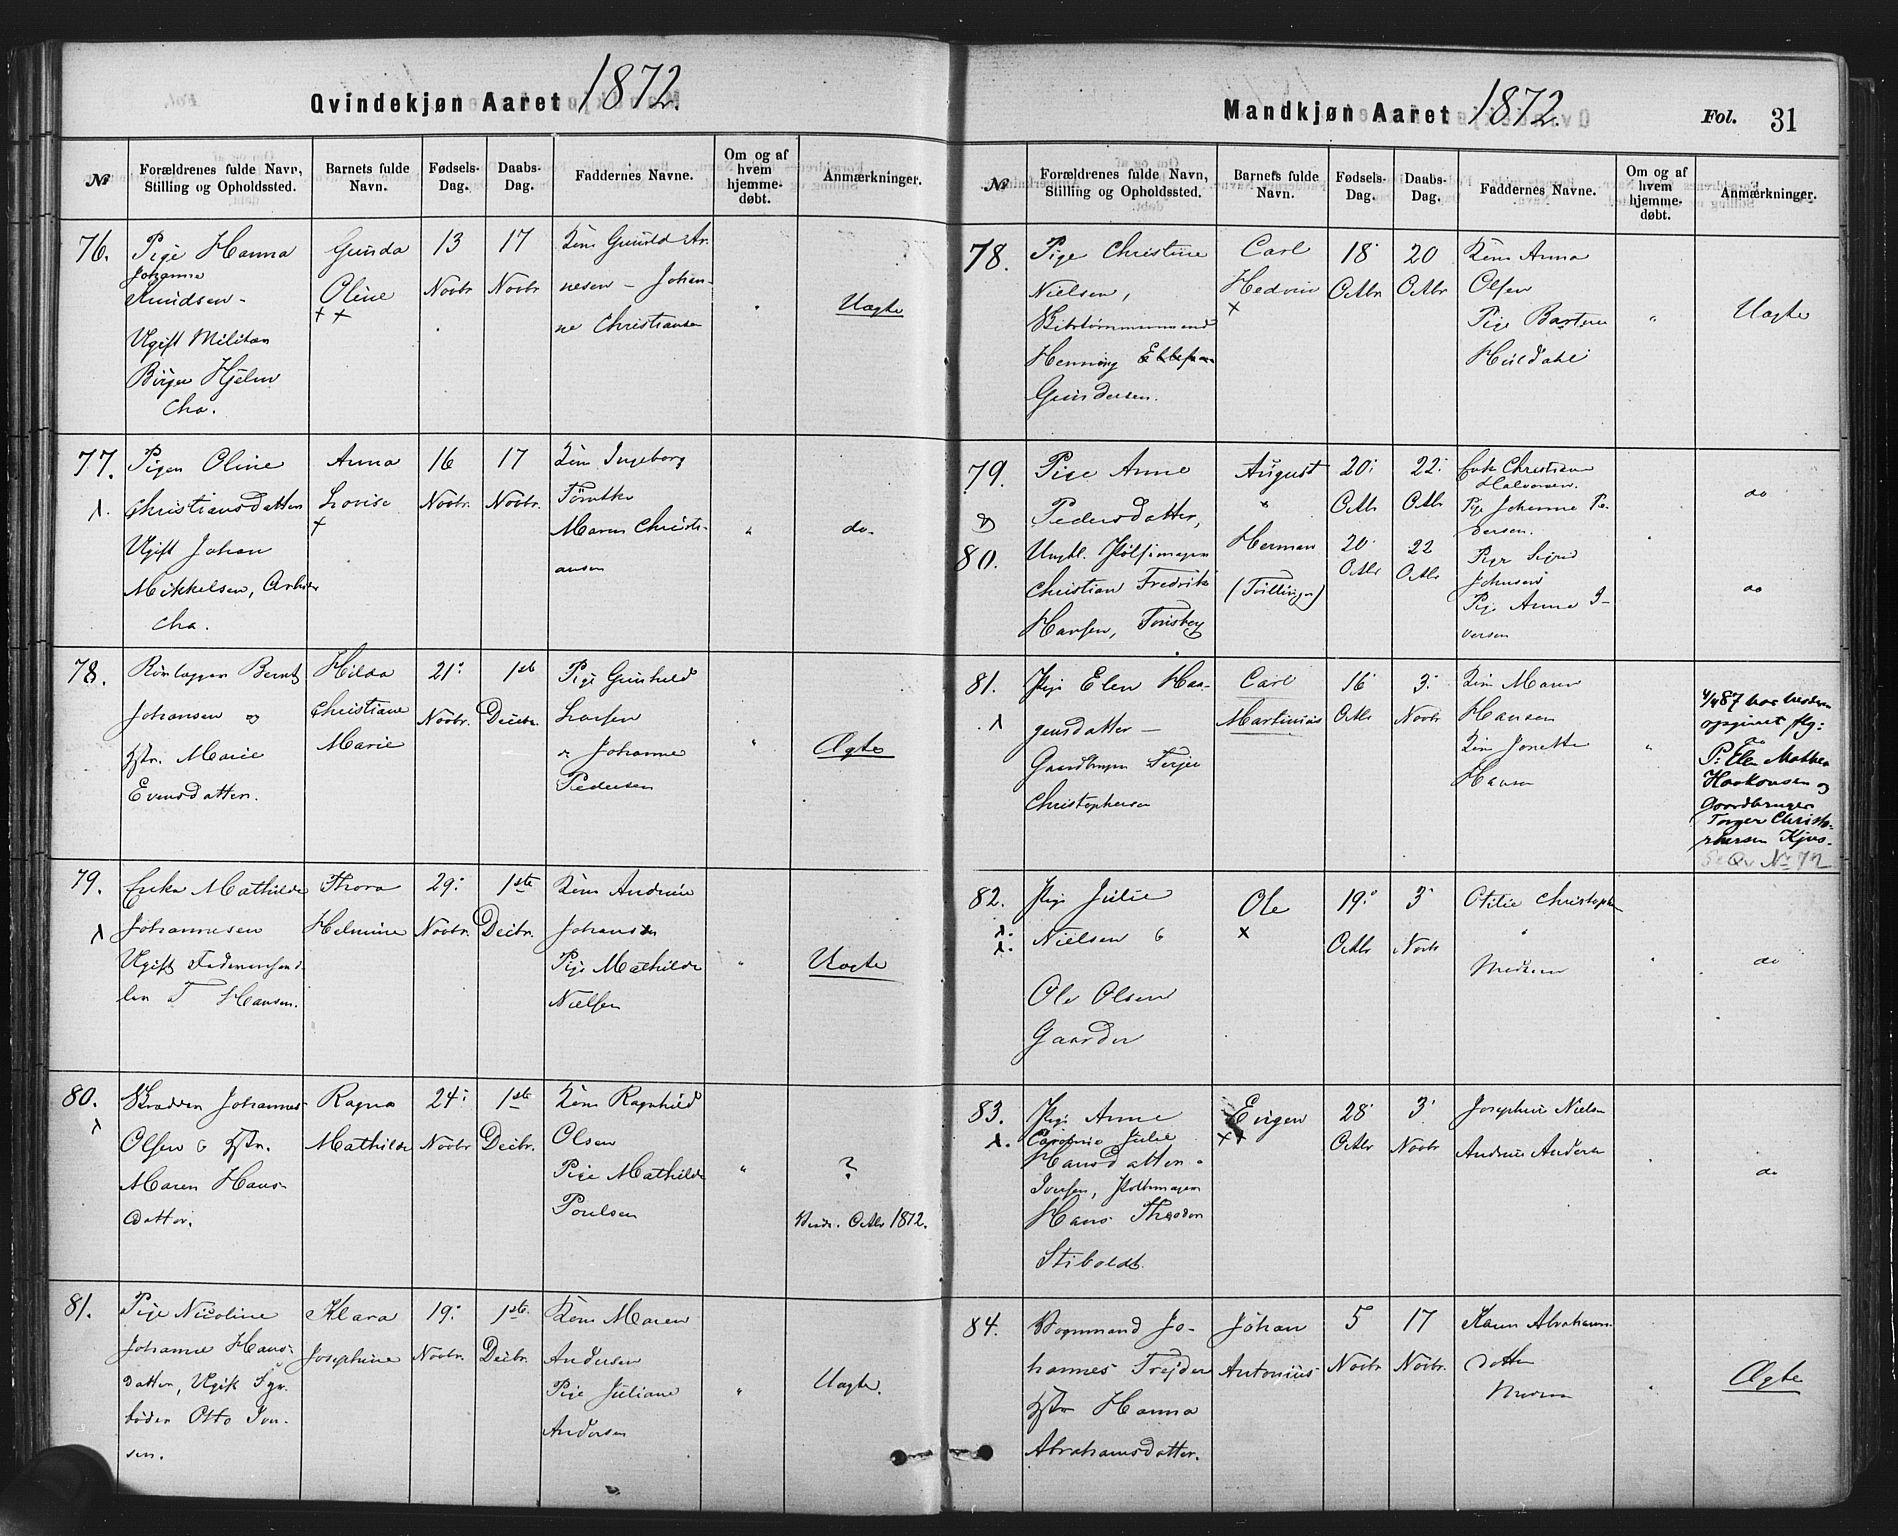 Qvindekjøn Aaret 1872.
№
Forældrenes fulde Navn, Stilling og Opholdssted.
Barnets fulde Navn.
Fødsels-Dag.
Daabs-Dag.
Faddernes Navne.
Om og af hvem hjemme-døbt.
Anmærkninger.
76.
Pige Hanna
Johanne
Knudsen -
Ugift Militær
Birger Hjelm
Cha.
Gunda
Oline
13
Novbr
17
Novbr
Kone Gunild Ar
nesen - Johan-
ne Christiansen
"
Uægte
77.
Pigen Oline
Christiansdatter
Ugift Johan
Mikkelsen, Arbeider
Cha.
Anna
Lovise
16
Novbr.
17
Novbr.
Kone Ingeborg
Maren Christi-
ansen
"
do.
78.
Bernt
Johansen og
Hstr. Marie
Evensdatter.
Hilda
Christiane
Marie
21:
Novbr.
1ste
Decbr.
Pige Gunhild
Larsen
Johanne
Pedersen
"
Ægte
79.
Enke Mathilde
Johannesen
Ugift
T Hansen.
Thora
Helmine
29:
Novbr.
1ste
Decbr.
Kone Andrine
Johansen
Pige Mathilde
Nielsen
"
Uægte
80.
Johannes
Olsen & Hstr.
Maren Hans-
datter.
Ragna
Mathilde
24:
Novbr.
1ste
Decbr.
Kone Ragnhild
Olsen
Pige Mathilde
Poulsen
"
?
Octbr 1872.
81.
Pige Nicoline
Johanne Hans-
datter, Ugift Sy-
bøder Otto Iver-
sen.
Klara
Josephine
19:
Novbr.
1ste
Decbr.
Kone Maren
Andersen
Pige Juliane
Andersen
"
Uægte.
Mandkjøn Aaret 1872.
Fol. 31
№
Forældrenes fulde Navn, Stilling og Opholdssted.
Barnets fulde Navn.
Fødsels-Dag.
Daabs-Dag.
Faddernes Navne.
Om og af hvem hjemme-døbt.
Anmærkninger.
78.
Pige Christine
Nielsen,
Skibstømmermand
Henning
Gundersen.
Carl
Hedvin
18
Octbr
20
Octbr
Kone Anna
Olsen
Pige
"
Uægte
79.
80.
Pige Anne
Pedersdatter,
Ungkl. Pølsemager
Christian Fredrik
Hansen, Tønsberg
August
Herman
(Tvillinger)
20:
Octbr
20
Octbr
22:
Octbr
22
Octbr
Enke Christiane
Halvorsen.
Pige Johanne Pe-
dersen.
Pige
Johnsen
Pige Anna I-
versen
do
do
81.
Pige Elen Haa-
gensdatter -
Gaardbruger Terjer
Christophersen
Carl
Martinius
16
Octbr
3
Novbr
Kone Maren
Hansen
Kone Jonette
Hansen
"
4/4 87 har moderen
opgivet flg:
P. Elen Mathea
Haakonsen og
Gaardbruger
Torger Christo-
phersen Kjøs-
Se Qv № 72
82.
Pige Julie
Nielsen &
Ole Olsen
Gaarder
Ole
19:
Octbr
3
Novbr
Otilie Christophe
do
83.
Pige Anne
Caroline Julie
Hansdatter.
Iversen, Pølsemager
Hans Theodor
Stiboldt.
Eugen
28
Octbr
3
Novbr
Josephine Nielsen
Andrine Andersen
do
84.
Vognmand Jo-
hannes Trejder
Hstr Hanna
Abrahamsdatter.
Johan
Antonius
5
Novbr
17
Novbr.
Karen Abrahams-
datter
Ægte